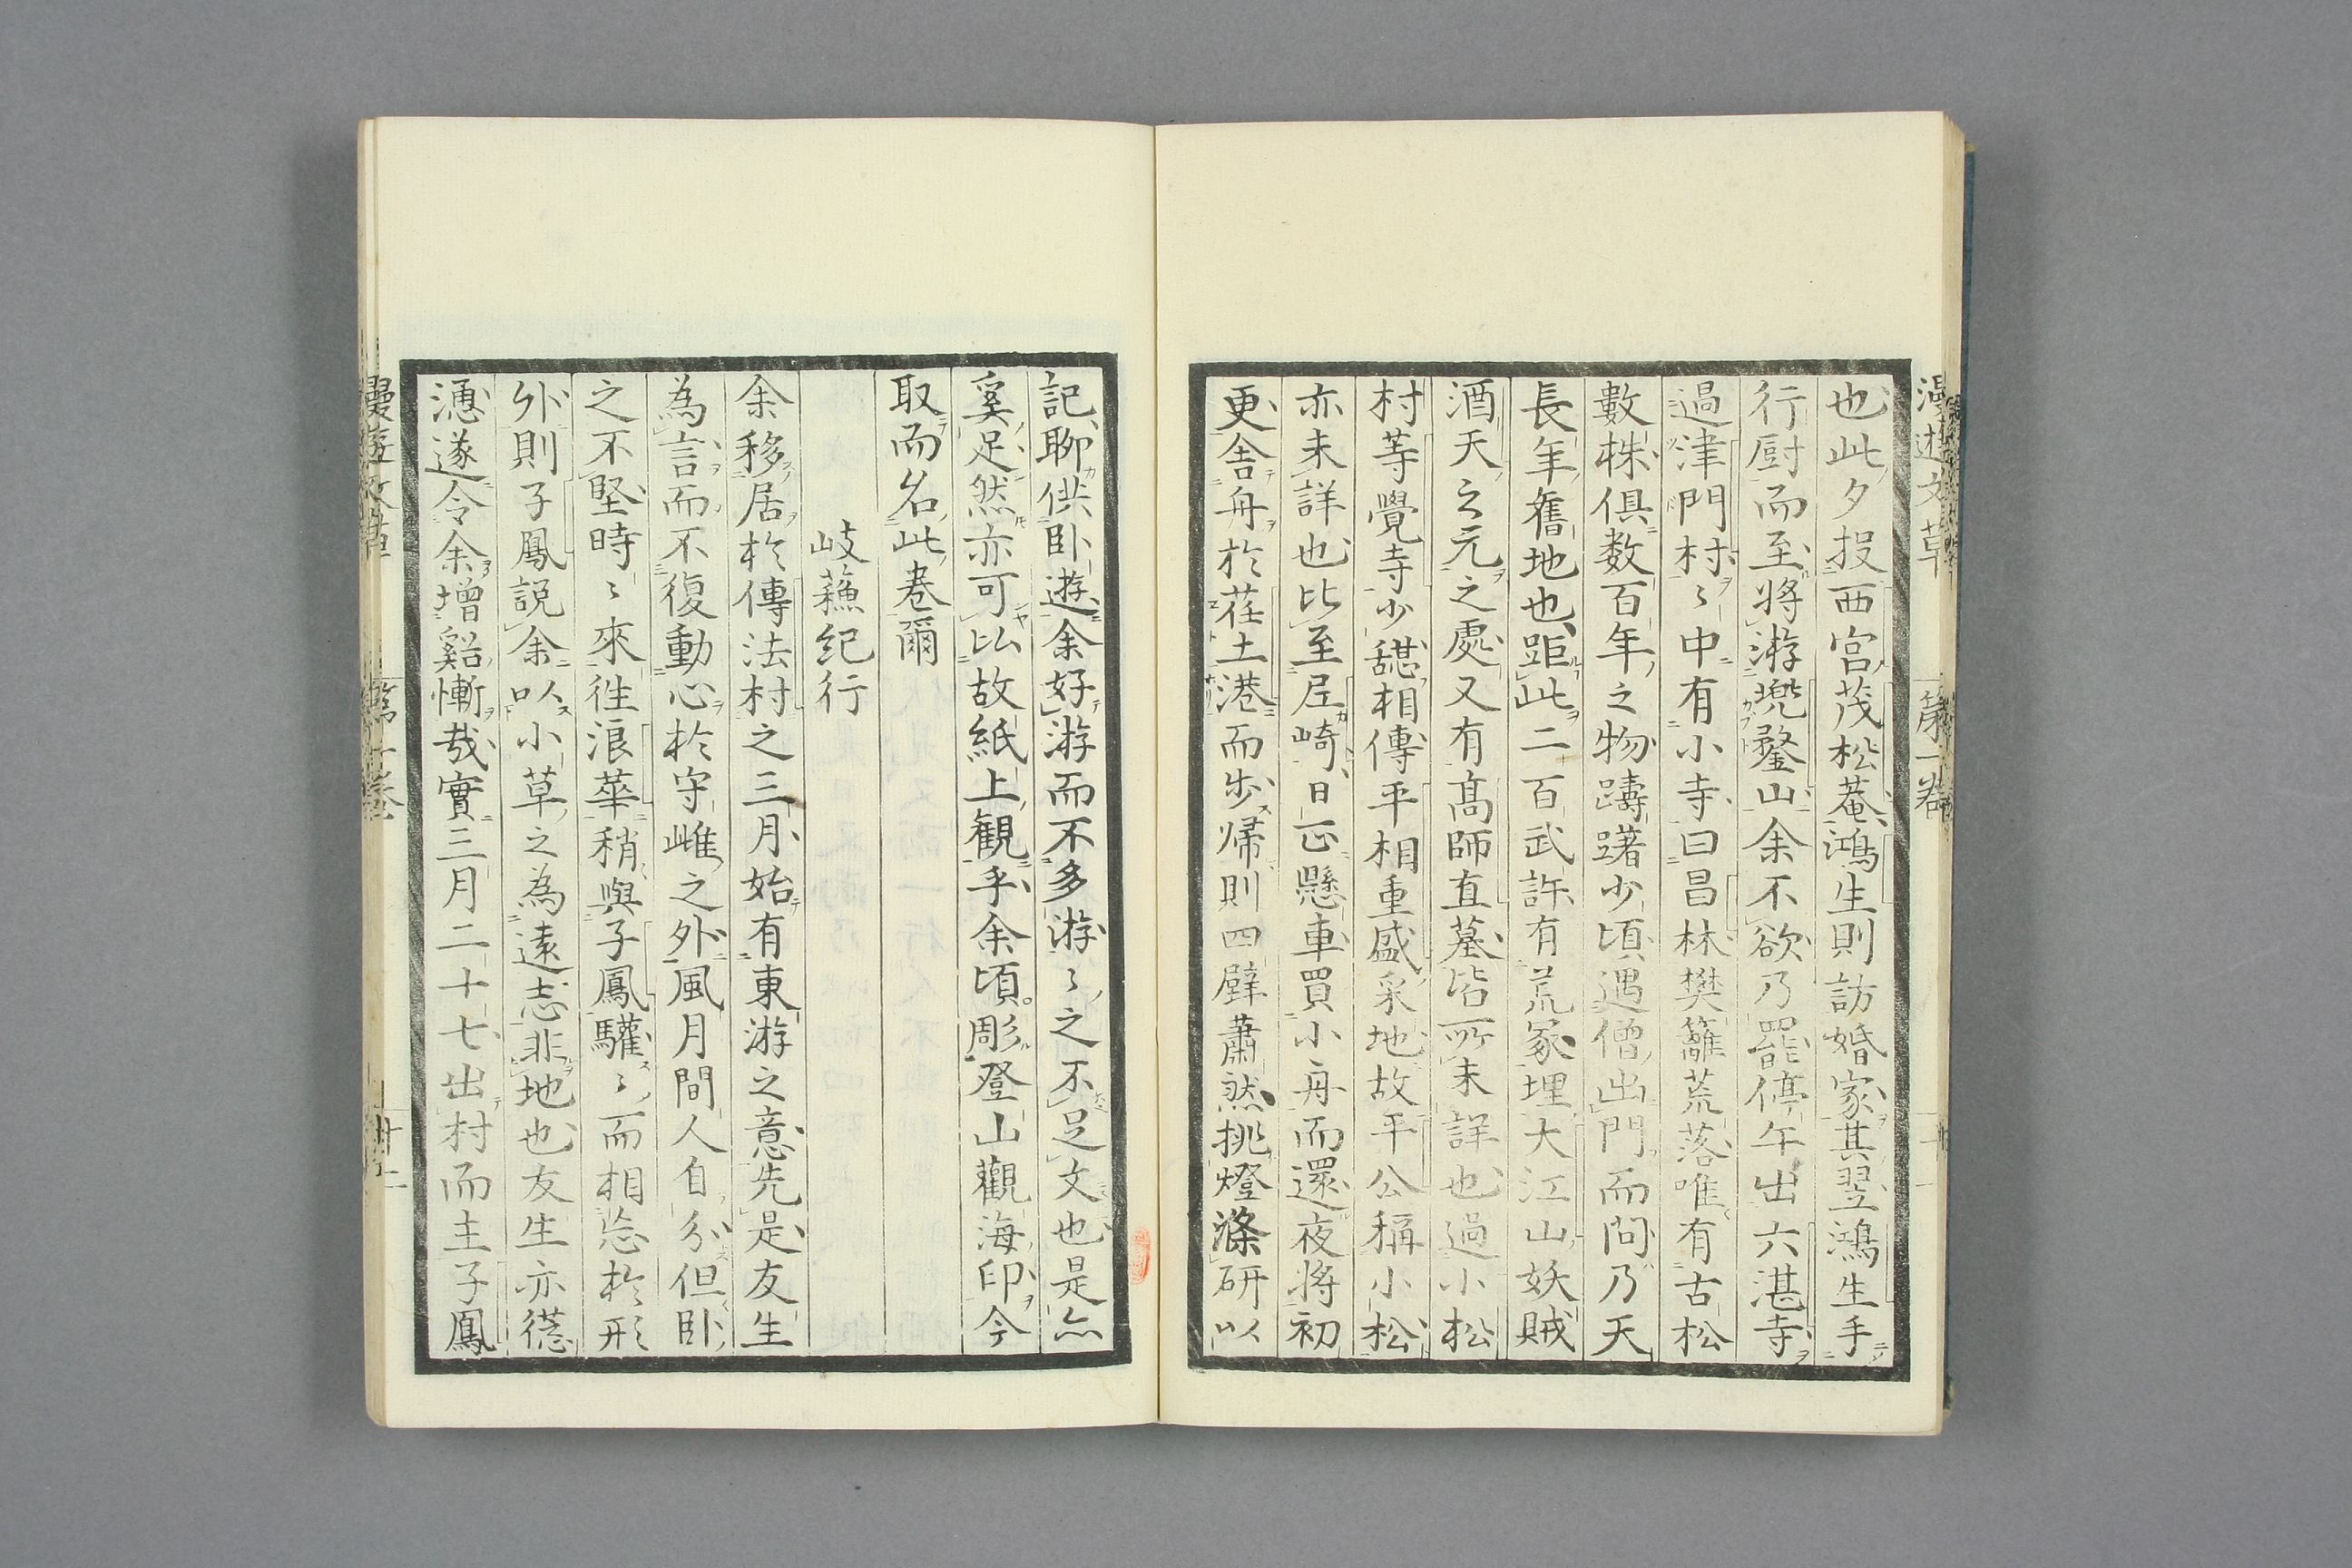 也此夕投西宮茂松菴鴻生則訪婚家其翌鴻生手
行厨而至將游兠鍪山余不欲乃罷停午出六湛寺
過津門村〻中有小寺曰昌林樊籬荒落唯有古松
數株俱数百年之物躊躇少頃遇僧出門而問乃天
長年舊地也距此二百武許有荒冢埋大江山妖賊
酒天之元之處又有髙師直墓皆所未詳也過小松
村等覺寺少憇相傳平相重盛采地故平公稱小松
亦未詳也比至尼崎日正懸車買小舟而還夜將初
更舎舟於荏土港而步帰則四壁蕭然挑燈滌研以
記聊供卧遊余好游而不多游〻之不足文也是亦
奚足然亦可以故紙上観乎余頃彫登山觀海印今
取而名此卷爾
岐蘓紀行
余移居於傳法村之三月始有東游之意先是友生
為言而不復動心於守雌之外風月間人自分但卧
之不堅時〻來徃浪華稍與子鳳驩〻而相忘於形
外則子鳳説余以小草之為遠志非地也友生亦慫
慂遂令余增谿慚哉實三月二十七出村而主子鳳
漫遊文草
第一卷
漫遊文草
第一卷
廿二